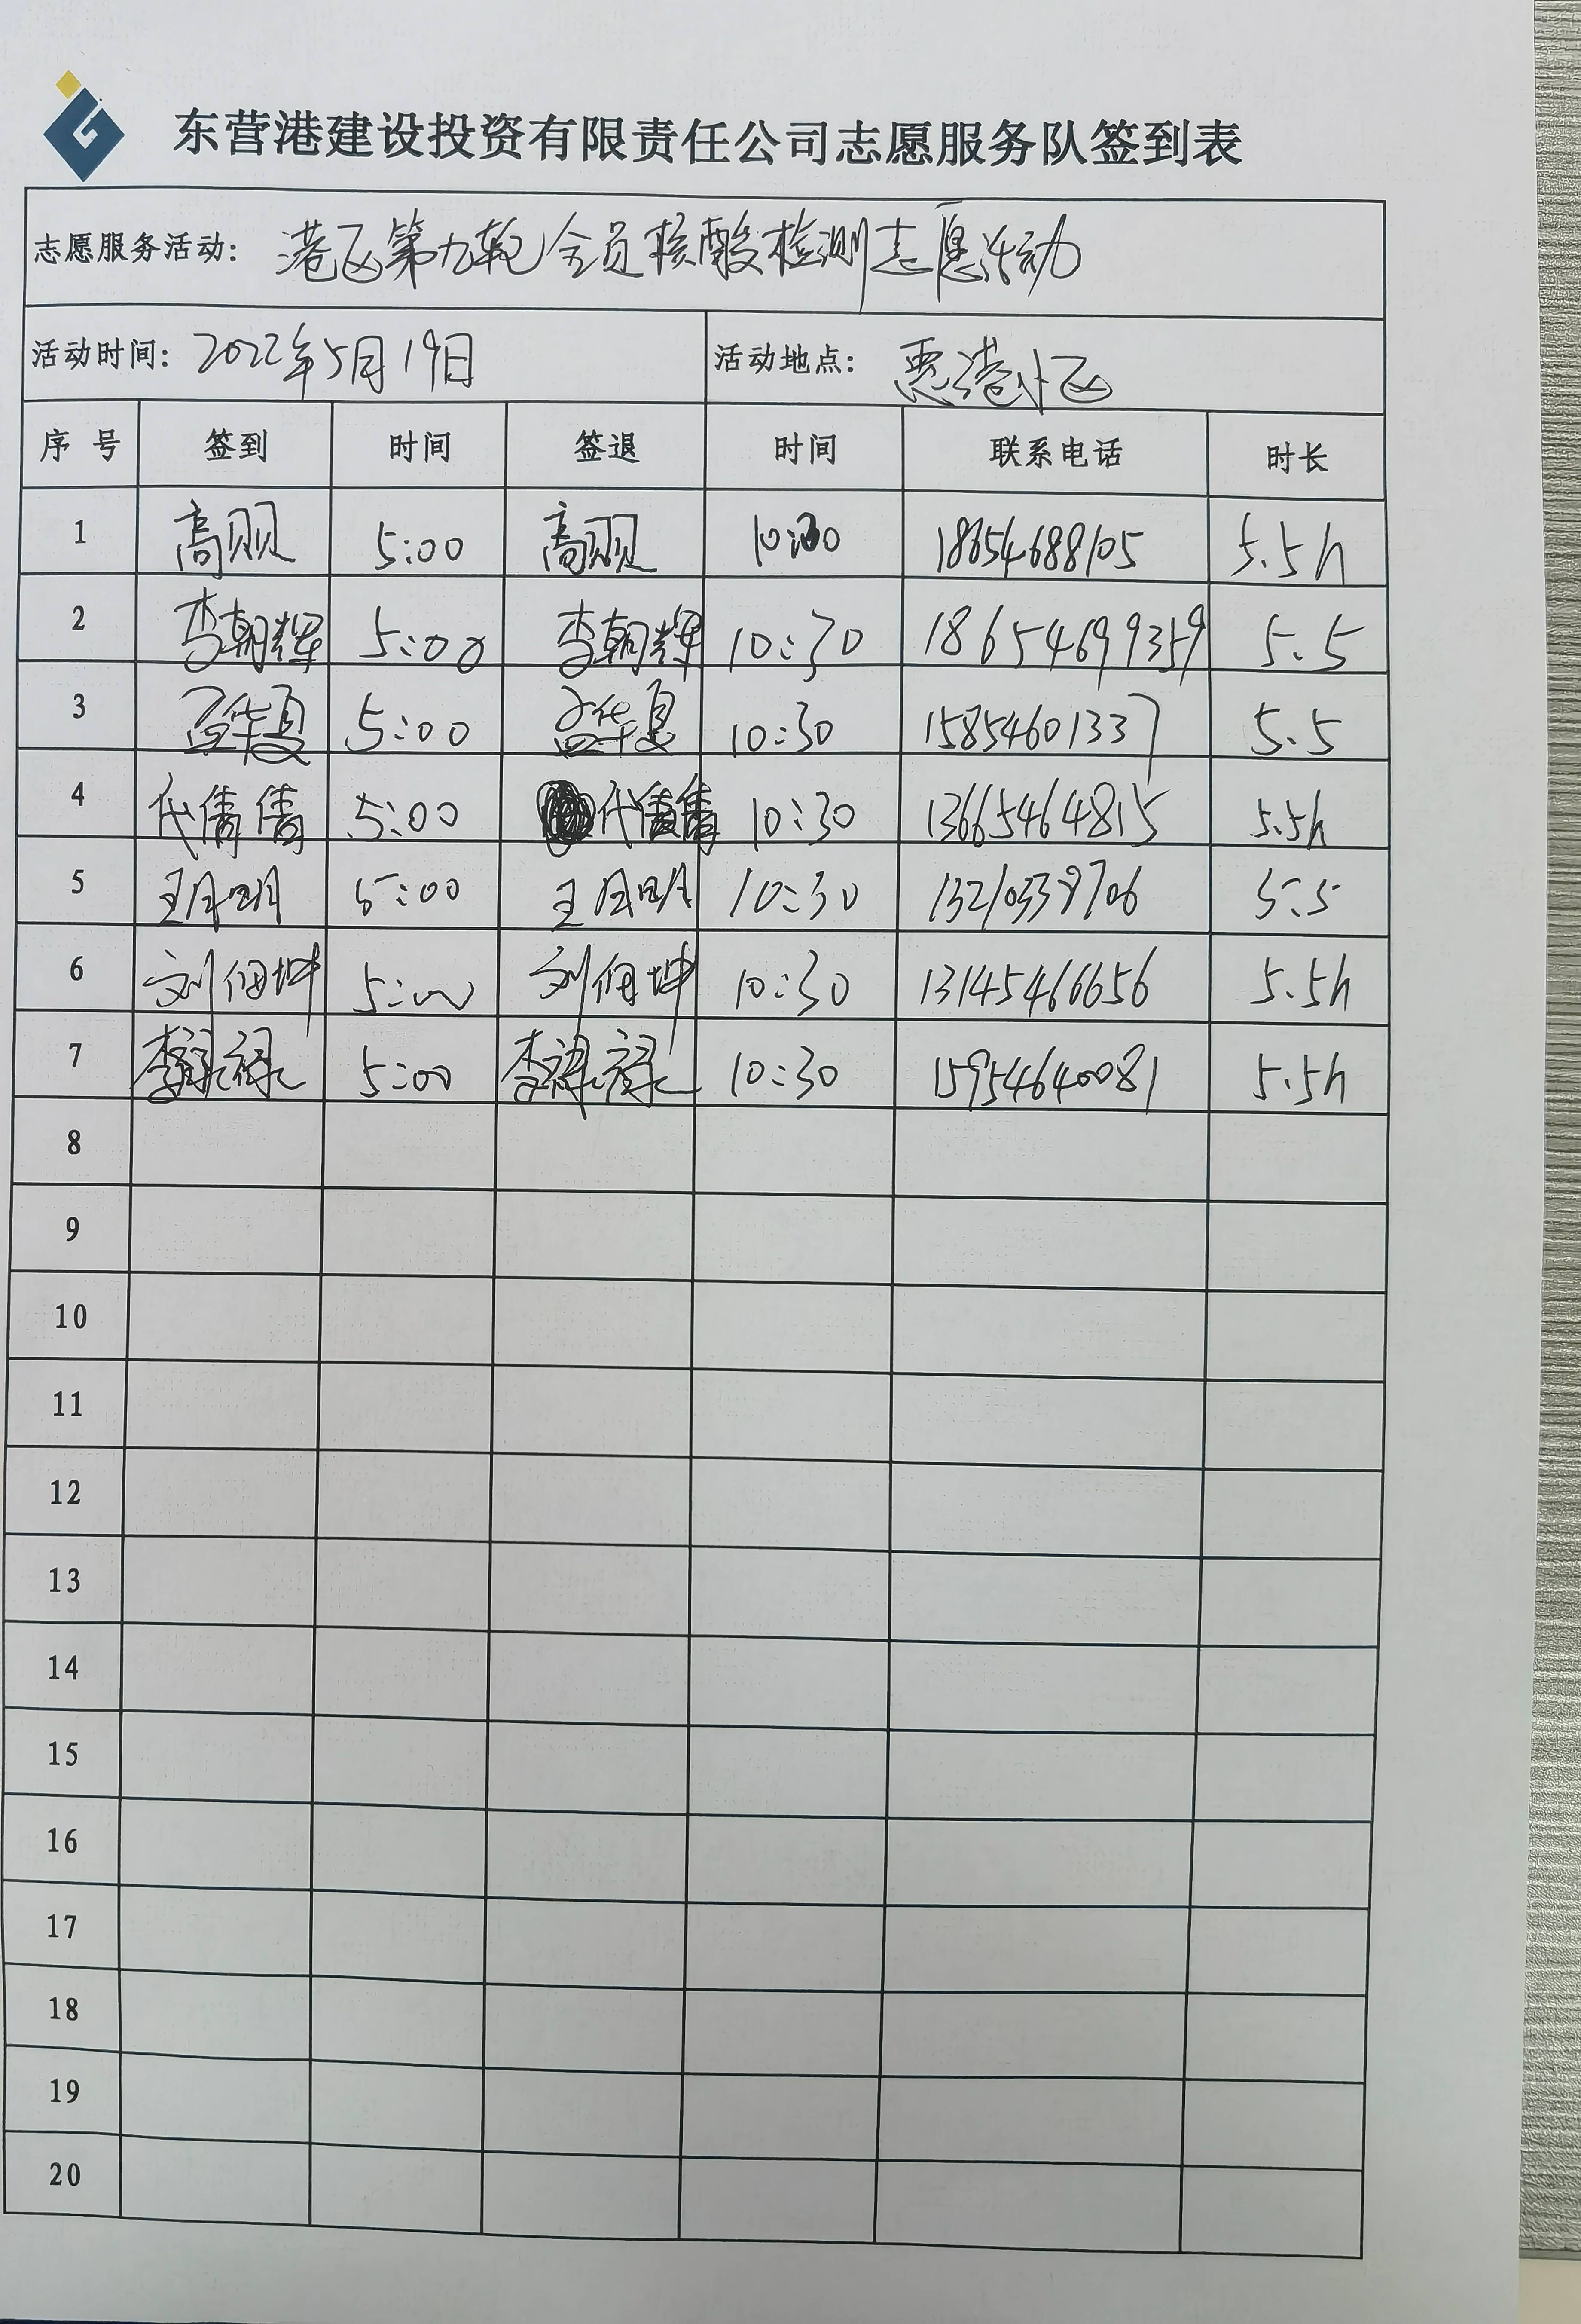 东营港建设投资有限责任公司志愿服务队签到表
志愿服务活动: 港区第九轮全员核酸检测志愿活动
活动时间: 2022年5月19日 活动地点: 惠港小区
序号 签到 时间 签退 时间 联系电话 时长
1 高丽 5:00 高丽 10:30 18654688105 5.5h
2 李朝辉 5:00 李朝辉 10:30 18654699359 5.5
3 孟华夏 5:00 孟华夏 10:30 15854601337 5.5
4 代倩倩 5:00 代倩倩 10:30 13665464815 5.5h
5 王月明 5:00 王月明 10:30 13210339706 5.5
6 刘佃坤 5:00 刘佃坤 10:30 13145466656 5.5h
7 李禄 5:00 李禄 10:30 15954640081 5.5h
8
9
10
11
12
13
14
15
16
17
18
19
20